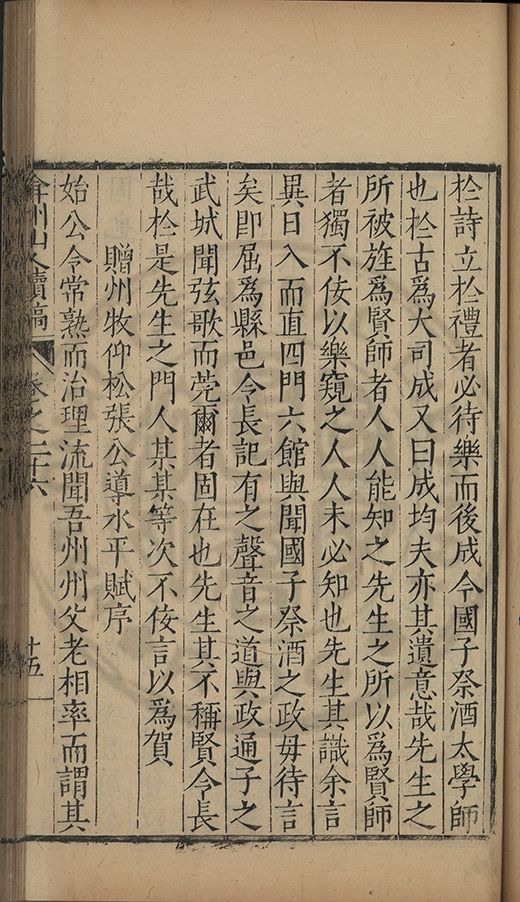 於詩立於禮者必待樂而後成今國子祭酒太學師
也於古爲大司成又曰成均夫亦其遺意哉先生之
所被旌爲賢師者人人能知之先生之所以爲賢師
者獨不佞以樂窺之人人未必知也先生其識余言
異日入而直四門六館與聞國子祭酒之政毋待言
矣卽屈爲縣邑令長記有之聲音之道與政通子之
武城聞弦歌而莞爾者固在也先生其不稱賢令長
哉於是先生之門人某某等次不佞言以爲賀
贈州牧仰松張公導水平賦序
始公令常熟而治理流聞吾州州父老相率而謂其
弇州山人續稿
卷之二十六
十五